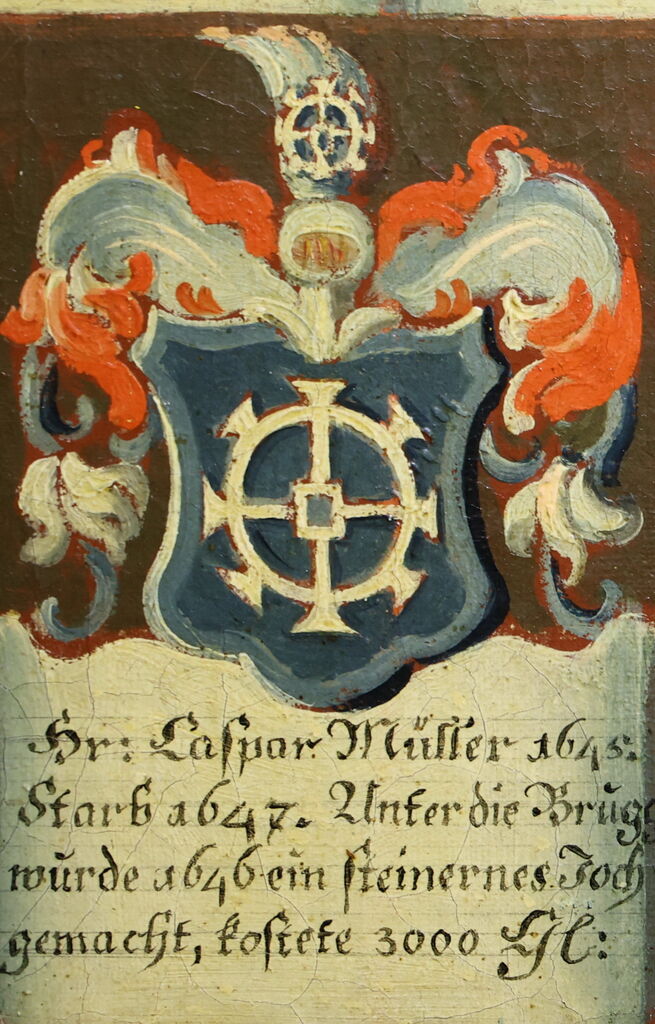 Hr: Caspar Müller 1645.
Starb 1647. Unter die Brügg
würde 1646 ein steinernes Joch
gemacht, kostete 3000 Gl: